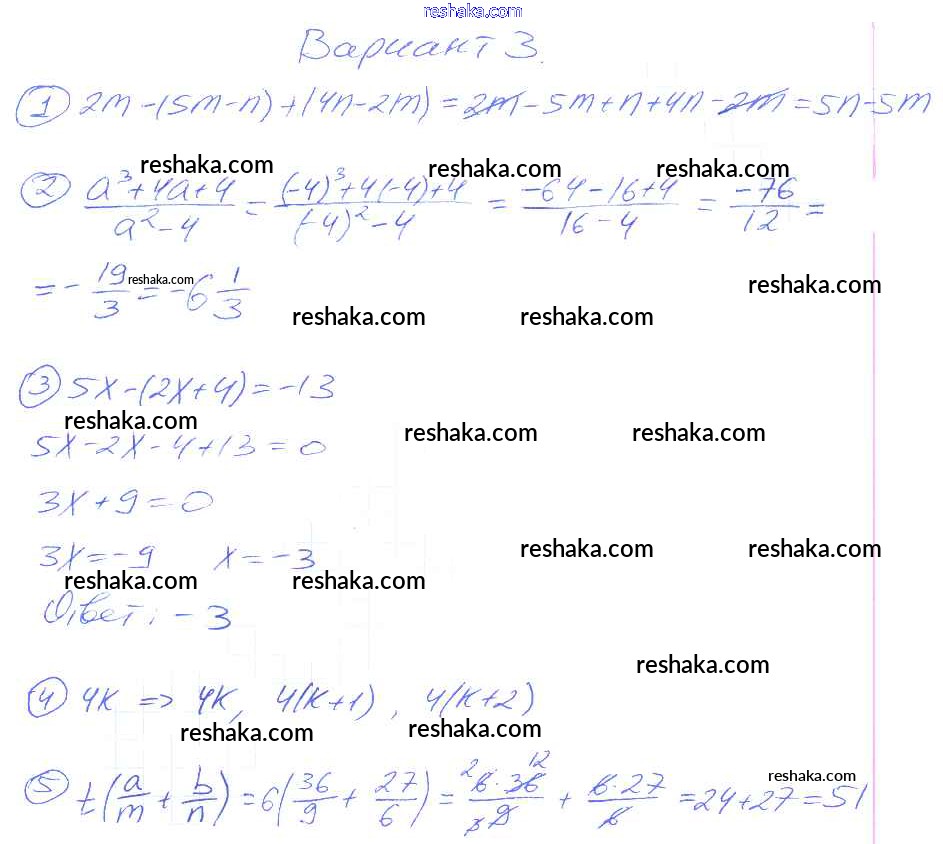 reshaka.com
Вариант 3.
① 2m-(5m-n)+(4n-2m)=2m-5m+n+4n-2m=5n-5m
reshaka.com reshaka.com reshaka.com
② (a³+4a+4)/(a²-4) = ((-4)³+4(-4)+4)/((-4)²-4) = (-64-16+4)/(16-4) = -76/12 =
= -19/3 = -6 1/3
reshaka.com reshaka.com
reshaka.com reshaka.com
③ 5x-(2x+4)=-13
reshaka.com reshaka.com reshaka.com
5x-2x-4+13=0
3x+9=0
3x=-9 x=-3
reshaka.com reshaka.com
reshaka.com reshaka.com
Ответ: -3
reshaka.com
④ 4k => 4k, 4(k+1), 4(k+2)
reshaka.com reshaka.com
reshaka.com
⑤ t(a/m + b/n) = 6(36/9 + 27/6) = (6·36)/9 + (6·27)/6 = 24+27=51
reshaka.com reshaka.com